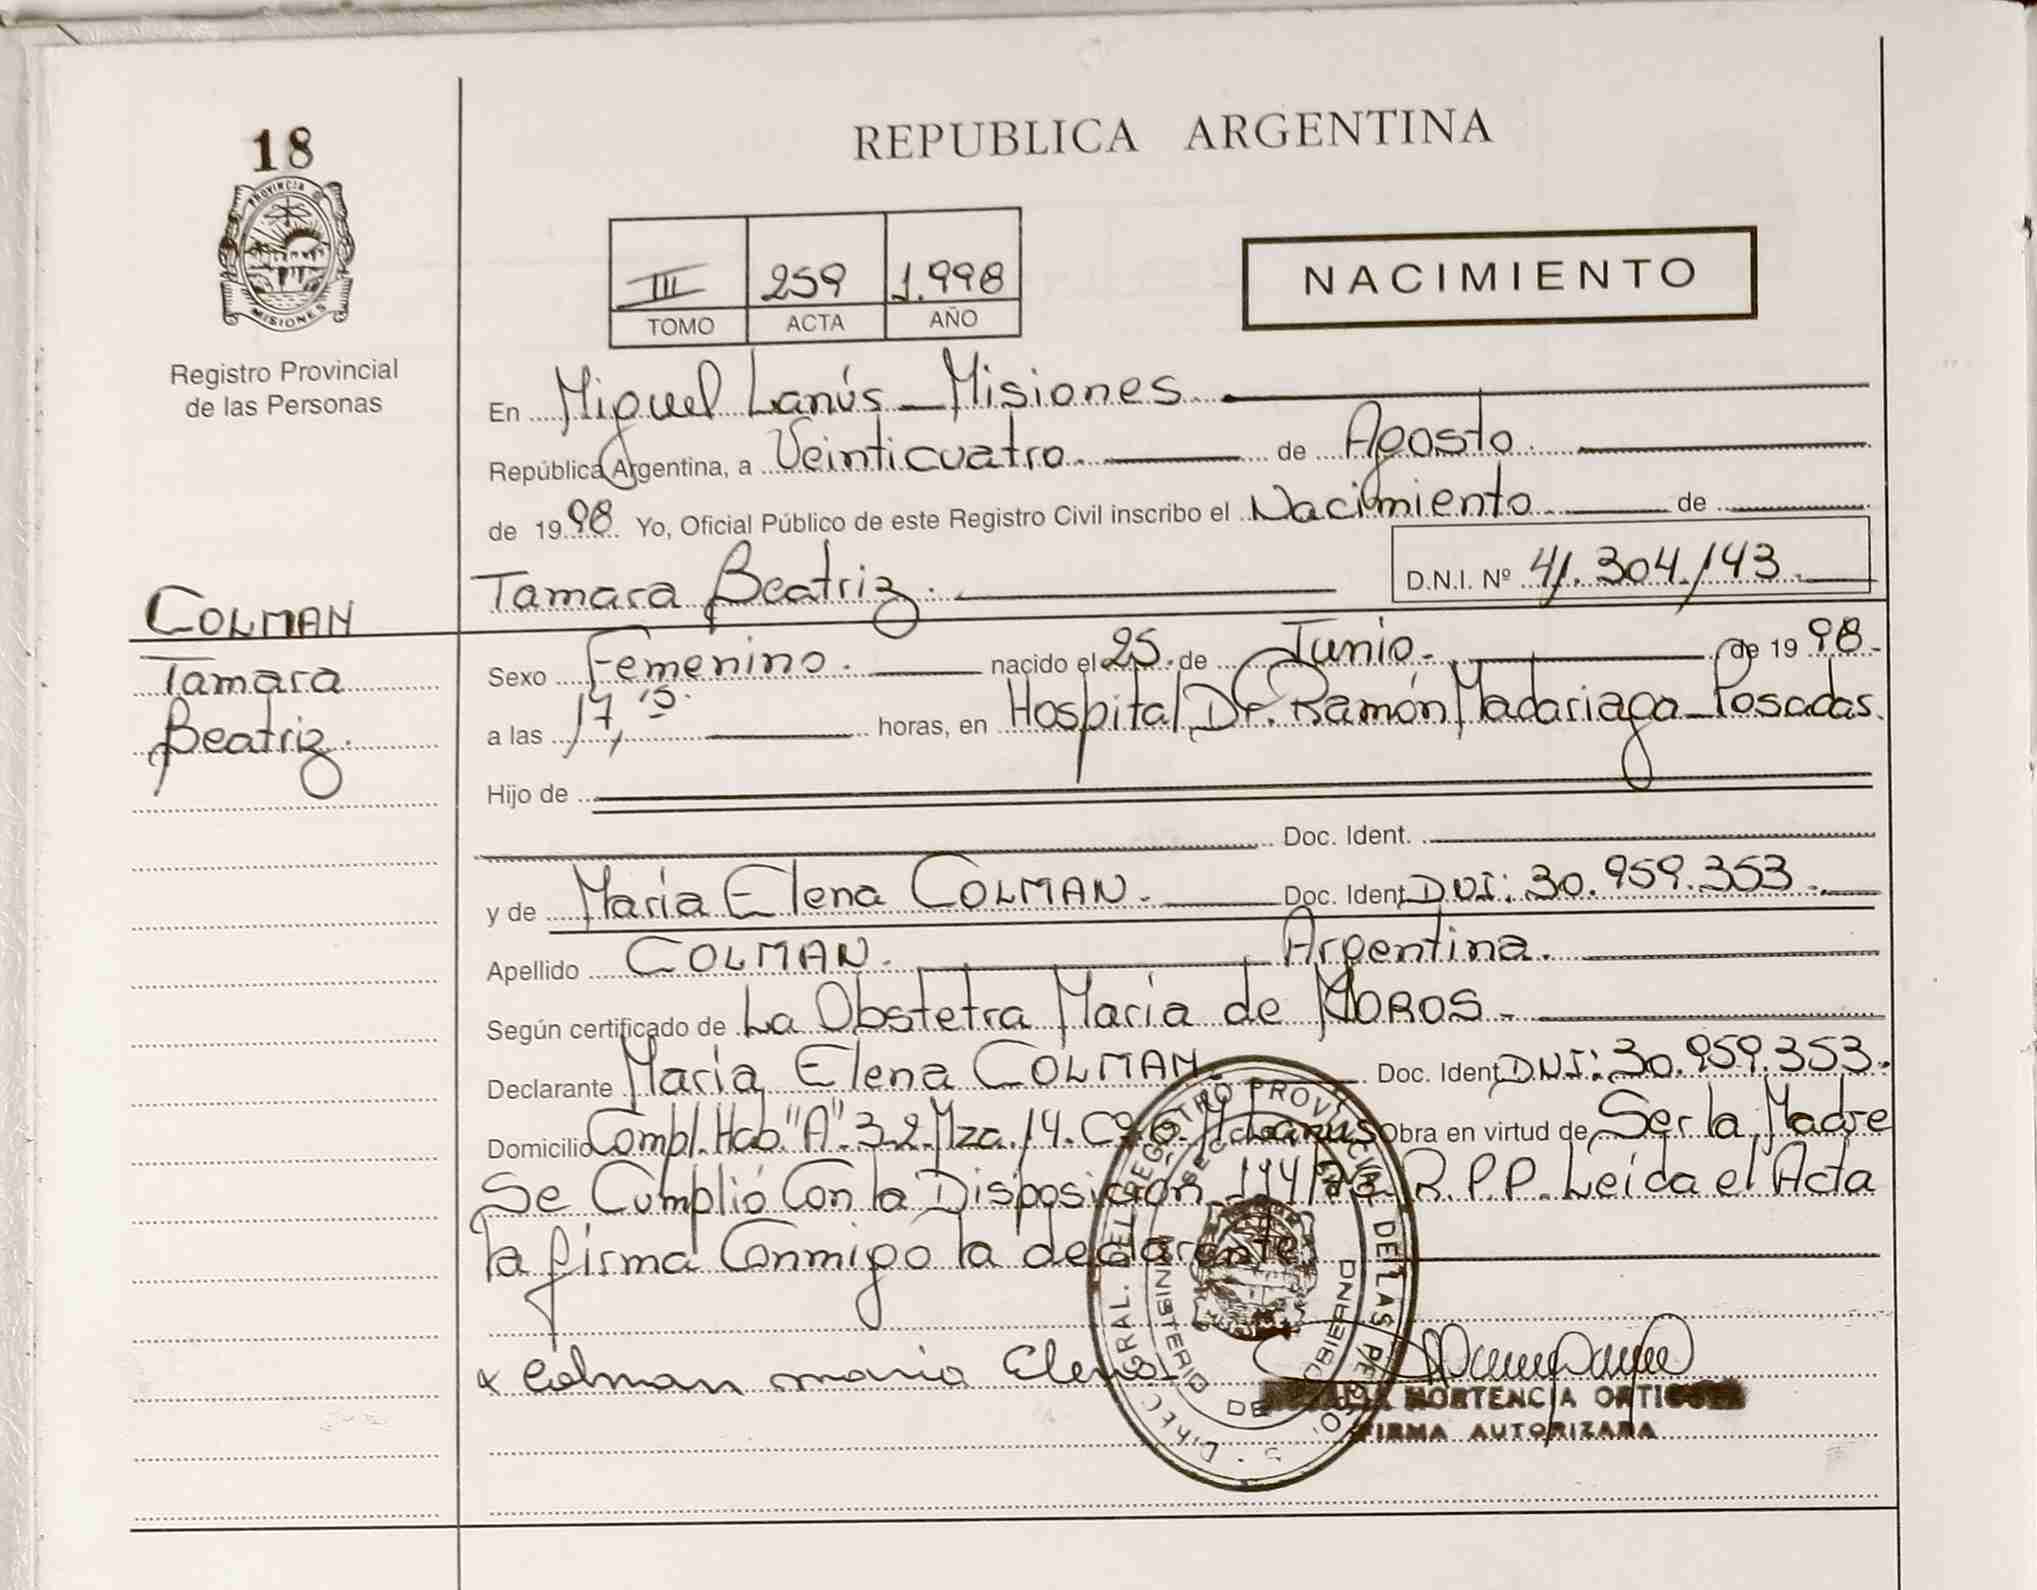 18
PROVINCIA D
MISIONES
Registro Provincial
de las Personas
COLMAN
Tamara
Beatriz.
REPUBLICA ARGENTINA
III 259 1.998
TOMO ACTA AÑO
NACIMIENTO
En Miguel Lanús - Misiones
República Argentina, a Veinticuatro. de Agosto
de 1998. Yo, Oficial Público de este Registro Civil inscribo el Nacimiento de
Tamara Beatriz. D.N.I. Nº 41.304.143.
Sexo Femenino. nacido el 25. de Junio. de 1998.
a las 17, 15. horas, en Hospital Dr. Ramón Madariaga - Posadas.
Hijo de
Doc. Ident.
y de María Elena COLMAN. Doc. Ident. DNI: 30.959.353.
Apellido COLMAN. Argentina.
Según certificado de La Obstetra María de MOROS.
Declarante María Elena COLMAN. Doc. Ident. DNI: 30.959.353.
Domicilio Compl. Hab. "A" 3.2. Mza. 14. Obra en virtud de Ser la Madre
Se Cumplió Con la Disposición R.P.P. Leída el Acta
la firma Conmigo la declarante
x Colman maria Elena
DIREC. GRAL. DEL REGISTRO PROVINCIAL DE LAS PERSONAS
MINISTERIO DE GOBIERNO
HORTENCIA
FIRMA AUTORIZADA